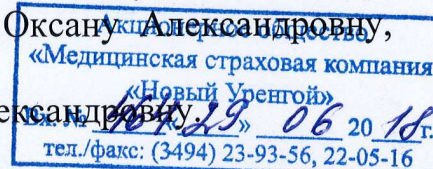 Оксану Александровну,
Акционерное общество
«Медицинская страховая компания
«Новый Уренгой»
ександровну.
Вх. № 464 «29» 06 20 18 г.
тел./факс: (3494) 23-93-56, 22-05-16